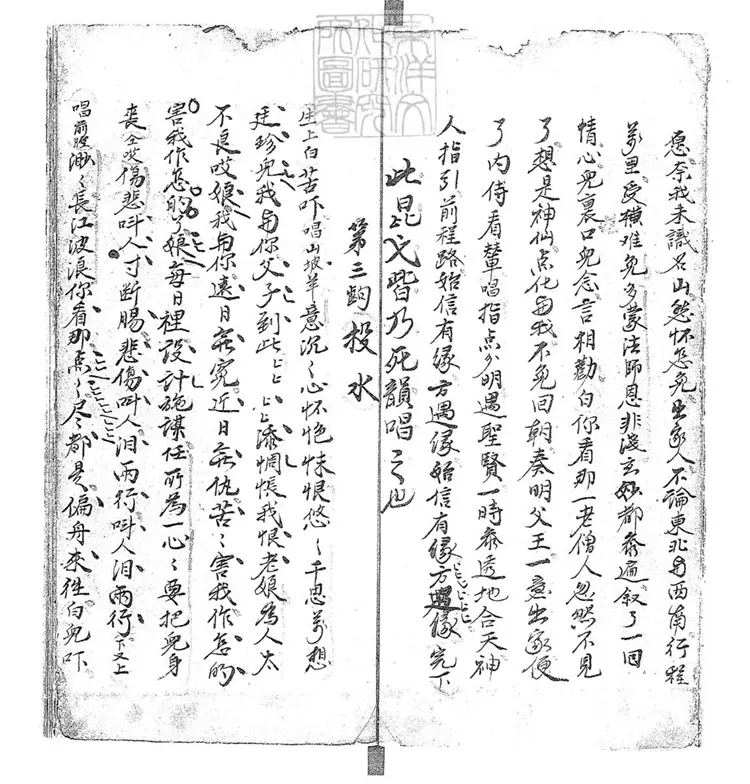 愿奈我未識名山愁怀怎免出家人不論東北与西南行程
萬里受橫难免多蒙法師恩非淺玄妙都參遍叙了一回
情心兒裏口兒念言相勸白你看那一老僧人忽然不見
了想是神仙点化与我不免回朝奏明父王一意出家便
了内侍看輦唱指点分明遇聖賢一時參透地合天神
人指引前程路始信有緣方遇緣始信有緣方遇緣完下
此昆弋皆乃死韻唱之也
第三齣投水
生上白苦吓唱山坡羊意沉〻心怀恍惚恨悠〻千思萬想
廷珍兒我与你父子到此添惆悵我恨老娘為人太
不良哎娘我与你遠日無冤近日無仇苦〻害我作怎的
害我作怎的了娘每日裡設計施謀任所為一心〻要把兒身
喪仝哎傷悲叫人寸断腸悲傷叫人泪兩行叫人泪兩行下又上
唱前腔渺〻長江波浪你看那点〻尽都是偏舟來往白兒吓
東洋文化研究所圖書